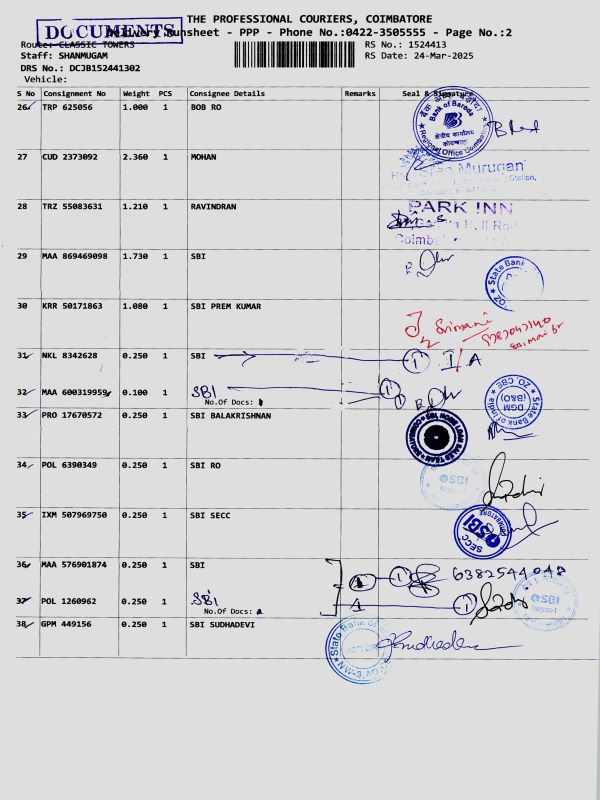 THE PROFESSIONAL COURIERS, COIMBATORE
DOCUMENTS
Delivery Runsheet - PPP - Phone No.:0422-3505555 - Page No.:2
Route: CLASSIC TOWERS
RS No.: 1524413
Staff: SHANMUGAM
RS Date: 24-Mar-2025
DRS No.: DCJB152441302
Vehicle:
S No Consignment No Weight PCS Consignee Details Remarks Seal & Signature
26 TRP 625056 1.000 1 BOB RO
Bank of Baroda
क्षेत्रीय कार्यालय
Regional Office
27 CUD 2373092 2.360 1 MOHAN
Murugan
Station,
28 TRZ 55083631 1.210 1 RAVINDRAN
PARK INN
29 MAA 869469098 1.730 1 SBI
State Bank
30 KRR 50171863 1.080 1 SBI PREM KUMAR
31 NKL 8342628 0.250 1 SBI
1 I/A
32 MAA 600319959 0.100 1 SBI
No.Of Docs:
1
State Bank of India
DGM
(B&O)
ZO, CBE
33 PRO 17670572 0.250 1 SBI BALAKRISHNAN
34 POL 6390349 0.250 1 SBI RO
SBI
35 IXM 507969750 0.250 1 SBI SECC
SBI
SECC
36 MAA 576901874 0.250 1 SBI
1 1 6382544048
37 POL 1260962 0.250 1 SBI
No.Of Docs:
1 1
SBI
Region-I
38 GPM 449156 0.250 1 SBI SUDHADEVI
State Bank of